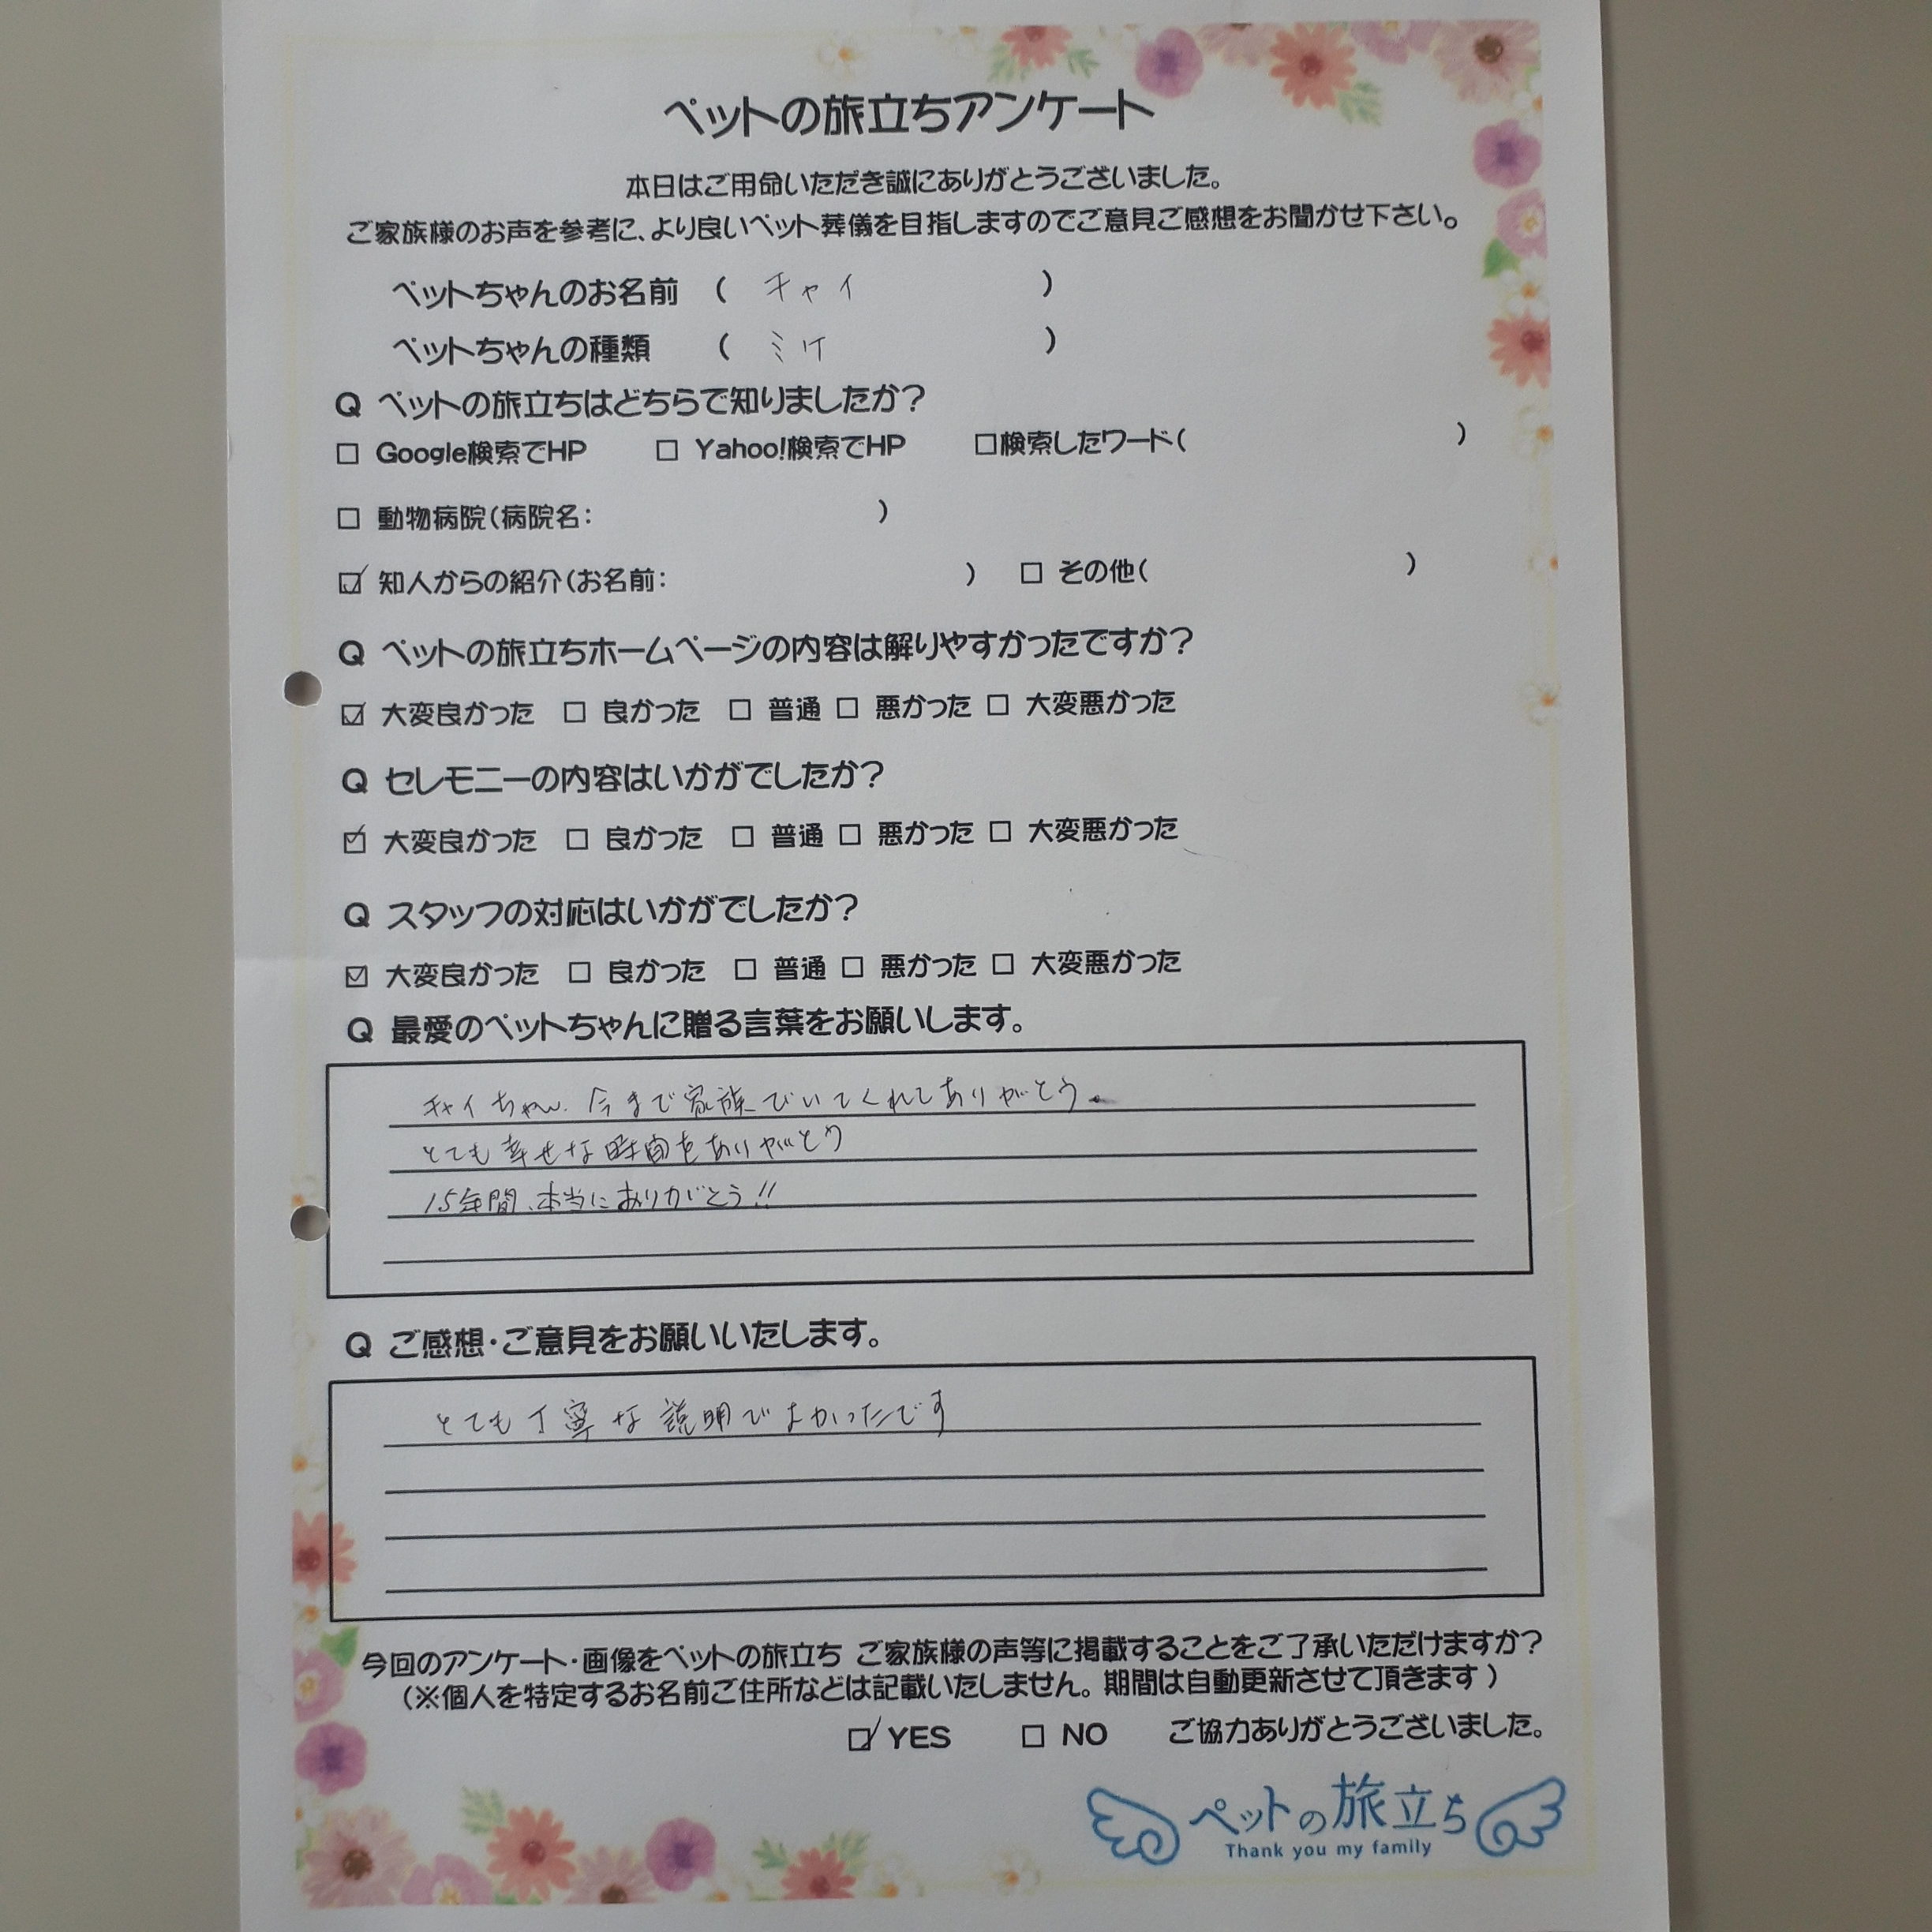 ペットの旅立ちアンケート
本日はご用命いただき誠にありがとうございました。
ご家族様のお声を参考に、より良いペット葬儀を目指しますのでご意見ご感想をお聞かせ下さい。
ペットちゃんのお名前 ( チャイ )
ペットちゃんの種類 ( ミケ )
Q ペットの旅立ちはどちらで知りましたか?
□ Google検索でHP □ Yahoo!検索でHP □検索したワード( )
□ 動物病院(病院名: )
☑ 知人からの紹介(お名前: ) □ その他( )
Q ペットの旅立ちホームページの内容は解りやすかったですか?
☑ 大変良かった □ 良かった □ 普通 □ 悪かった □ 大変悪かった
Q セレモニーの内容はいかがでしたか?
☑ 大変良かった □ 良かった □ 普通 □ 悪かった □ 大変悪かった
Q スタッフの対応はいかがでしたか?
☑ 大変良かった □ 良かった □ 普通 □ 悪かった □ 大変悪かった
Q 最愛のペットちゃんに贈る言葉をお願いします。
チャイちゃん、今まで家族でいてくれてありがとう。
とても幸せな時間をありがとう
15年間、本当にありがとう!!
Q ご感想・ご意見をお願いいたします。
とても丁寧な説明でよかったです
今回のアンケート・画像をペットの旅立ち ご家族様の声等に掲載することをご了承いただけますか?
(※個人を特定するお名前ご住所などは記載いたしません。期間は自動更新させて頂きます)
☑ YES □ NO ご協力ありがとうございました。
ペットの旅立ち
Thank you my family